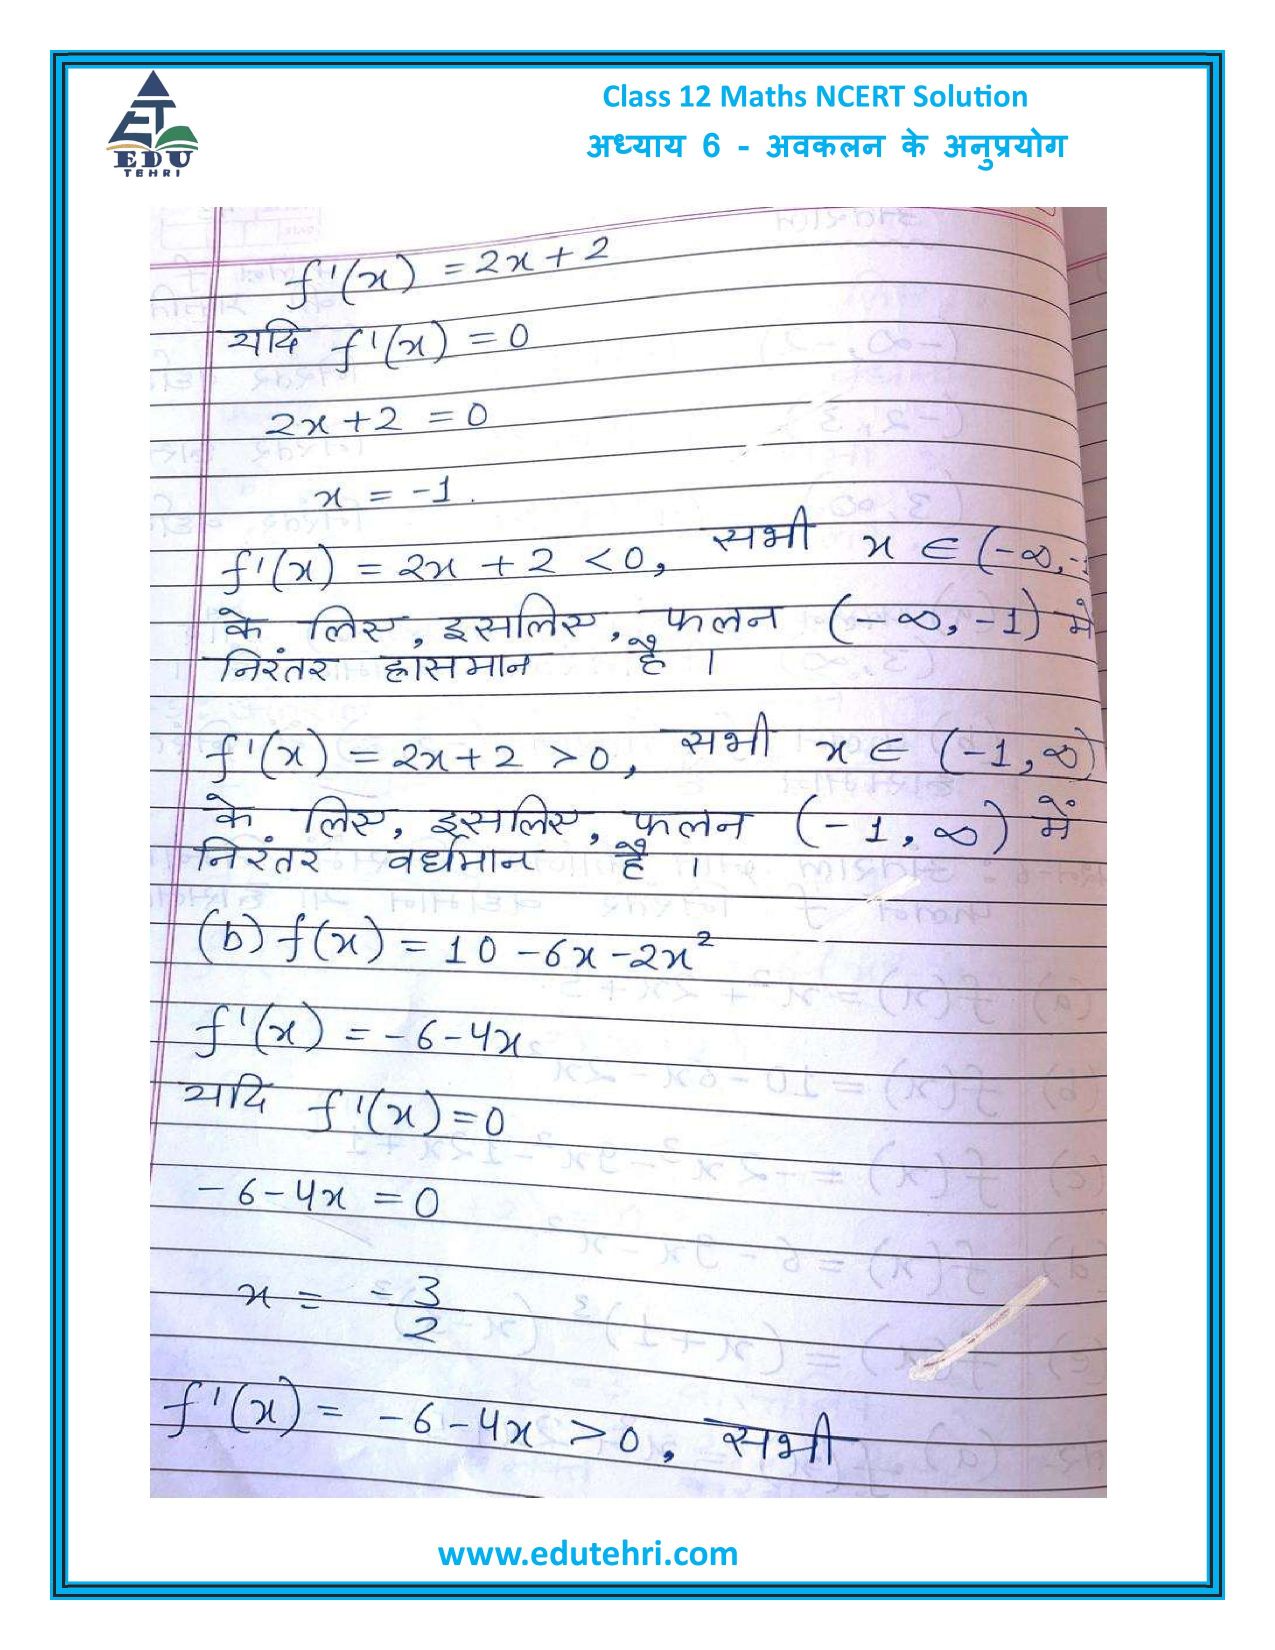 Class 12 Maths NCERT Solution
अध्याय 6 - अवकलन के अनुप्रयोग
ET
EDU
TEHRI
f'(x) = 2x + 2
यदि f'(x) = 0
2x + 2 = 0
x = -1.
f'(x) = 2x + 2 < 0, सभी x ∈ (-∞, -1
के लिए, इसलिए, फलन (-∞, -1) में
निरंतर ह्रासमान है ।
f'(x) = 2x + 2 > 0, सभी x ∈ (-1, ∞)
के लिए, इसलिए, फलन (-1, ∞) में
निरंतर वर्धमान है ।
(b) f(x) = 10 - 6x - 2x²
f'(x) = -6 - 4x
यदि f'(x) = 0
-6 - 4x = 0
x = -3/2
f'(x) = -6 - 4x > 0, सभी
www.edutehri.com